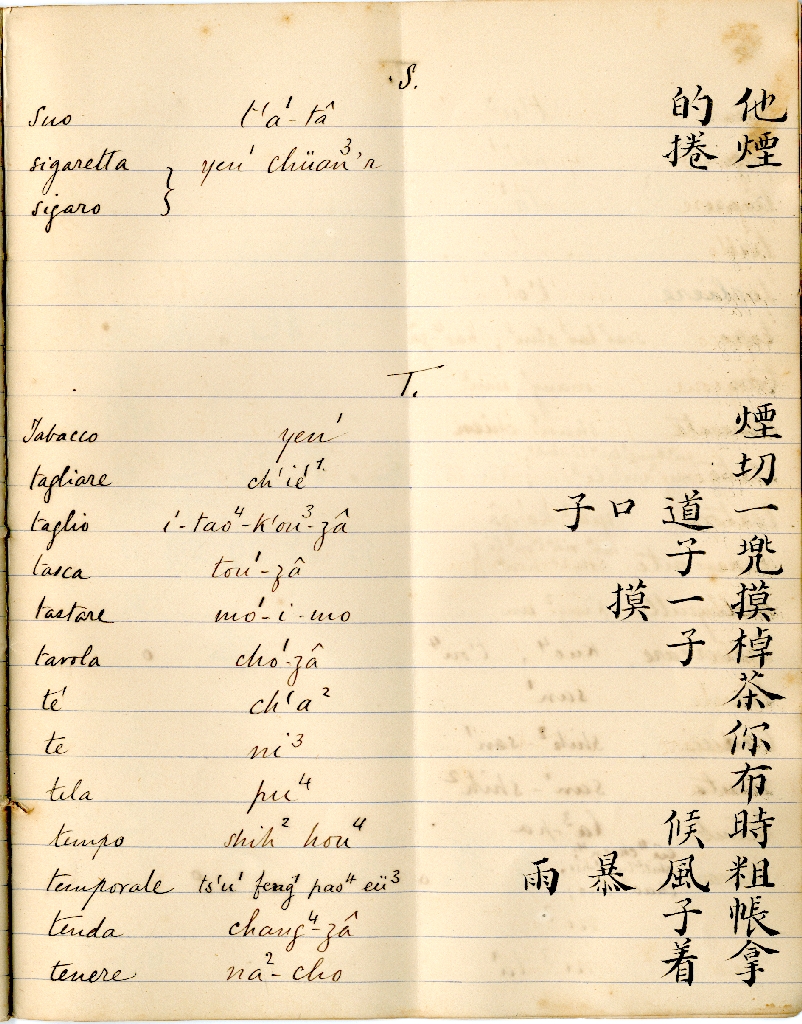 S.
Suo t'a¹-tâ 他的
sigaretta } yen¹ chüan³'r 煙捲
sigaro
T.
Tabacco yen¹ 煙
tagliare ch'ié¹ 切
taglio i¹-tao⁴-k'ou³-zâ 一道口子
tasca tou¹-zâ 兜子
tastare mo¹-i-mo 摸一摸
tavola cho¹-zâ 棹子
té ch'a² 茶
te ni³ 你
tela pu⁴ 布
tempo shih² hou⁴ 時候
temporale ts'u¹ feng¹ pao⁴ eü³ 粗風暴雨
tenda chang⁴-zâ 帳子
tenere na²-cho 拿着